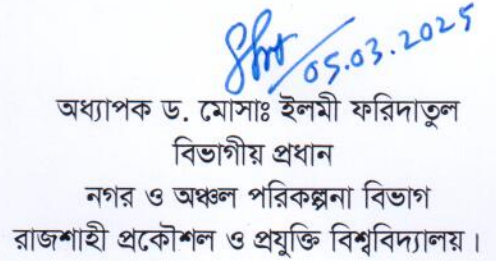 05.03.2025
অধ্যাপক ড. মোসাঃ ইলমী ফরিদাতুল
বিভাগীয় প্রধান
নগর ও অঞ্চল পরিকল্পনা বিভাগ
রাজশাহী প্রকৌশল ও প্রযুক্তি বিশ্ববিদ্যালয়।